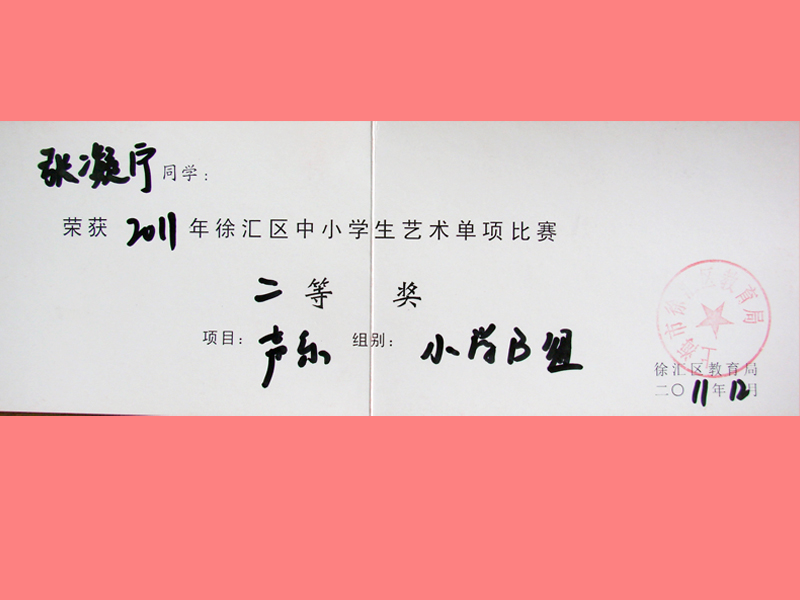 张凝宁同学:
荣获2011年徐汇区中小学生艺术单项比赛
二等 奖
项目:声乐 组别:小学B组
上海市徐汇区教育局
徐汇区教育局
二〇11年12月